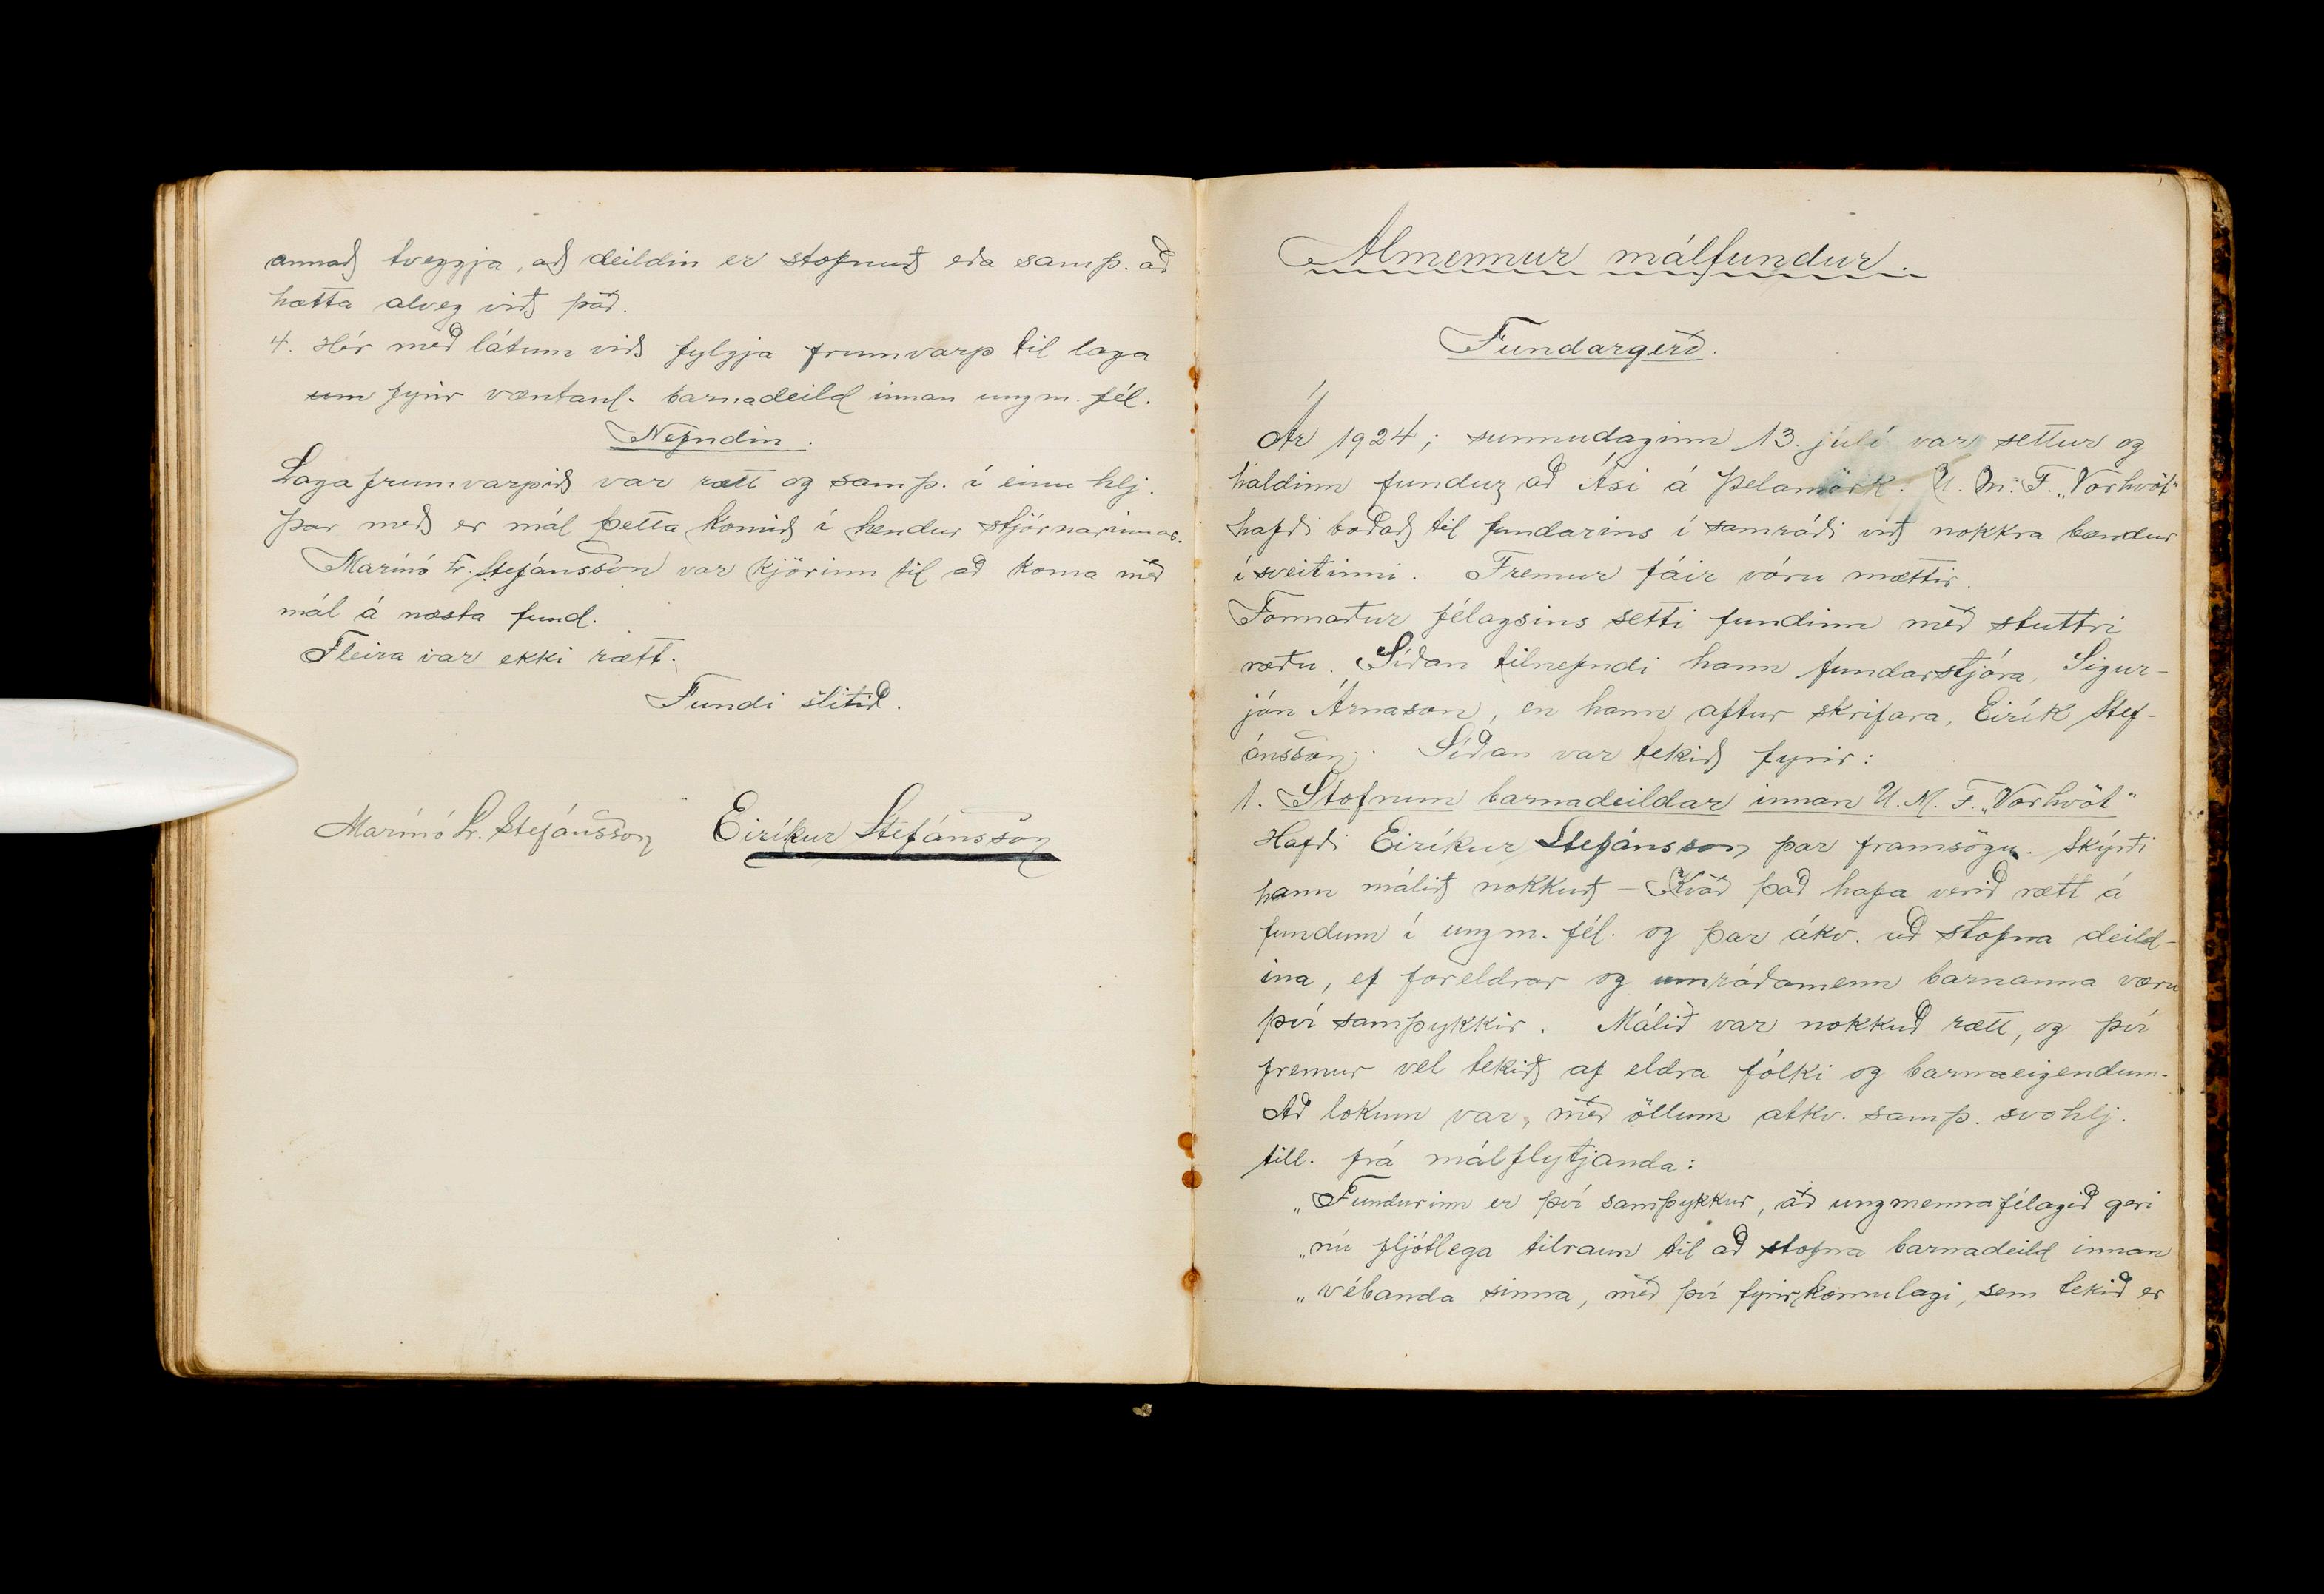 annað tveggja, að deildin er stofnuð eða samþ. að
hætta alveg við það.
4. Hér með látum við fylgja frumvarp til laga
um fyrir væntanl. barnadeild innan ungm. fél.
Nefndin.
Lagafrumvarpið var rætt og samþ. í einu hlj.
Þar með er mál þetta komið í hendur stjórnarinnar.
Marínó Stefánsson var kjörinn til að koma með
mál á næsta fund.
Fleira var ekki rætt.
Fundi slitið.
Marínó L. Stefánsson Eiríkur Stefánsson
Almennur málfundur.
Fundargerð.
Ár 1924; sunnudaginn 13. júlí var settur og
haldinn fundur að Ási á Þelamörk. U. M. F. „Vorhvöt"
hafði boðað til fundarins í samráði við nokkra bændur
í sveitinni. Fremur fáir vóru mættir.
Formaður félagsins setti fundinn með stuttri
ræðu. Síðan tilnefndi hann fundarstjóra, Sigur-
jón Árnason, en hann aftur skrifara, Eirík Stef-
ánsson. Síðan var tekið fyrir:
1. Stofnun barnadeildar innan U. M. F. „Vorhvöt"
Hafði Eiríkur Stefánsson þar framsögu. Skýrði
hann málið nokkuð - Kvað það hafa verið rætt á
fundum í ungm. fél. og þar ákv. að stofna deild-
ina, ef foreldrar og umráðamenn barnanna væru
því samþykkir. Málið var nokkuð rætt, og því
fremur vel tekið af eldra fólki og barnaeigendum.
Að lokum var, með öllum atkv. samþ. svohlj.
till. frá málflytjanda:
„Fundurinn er því samþykkur, að ungmennafélagið geri
„nú fljótlega tilraun til að stofna barnadeild innan
„vébanda sinna, með því fyrirkomulagi, sem tekið er